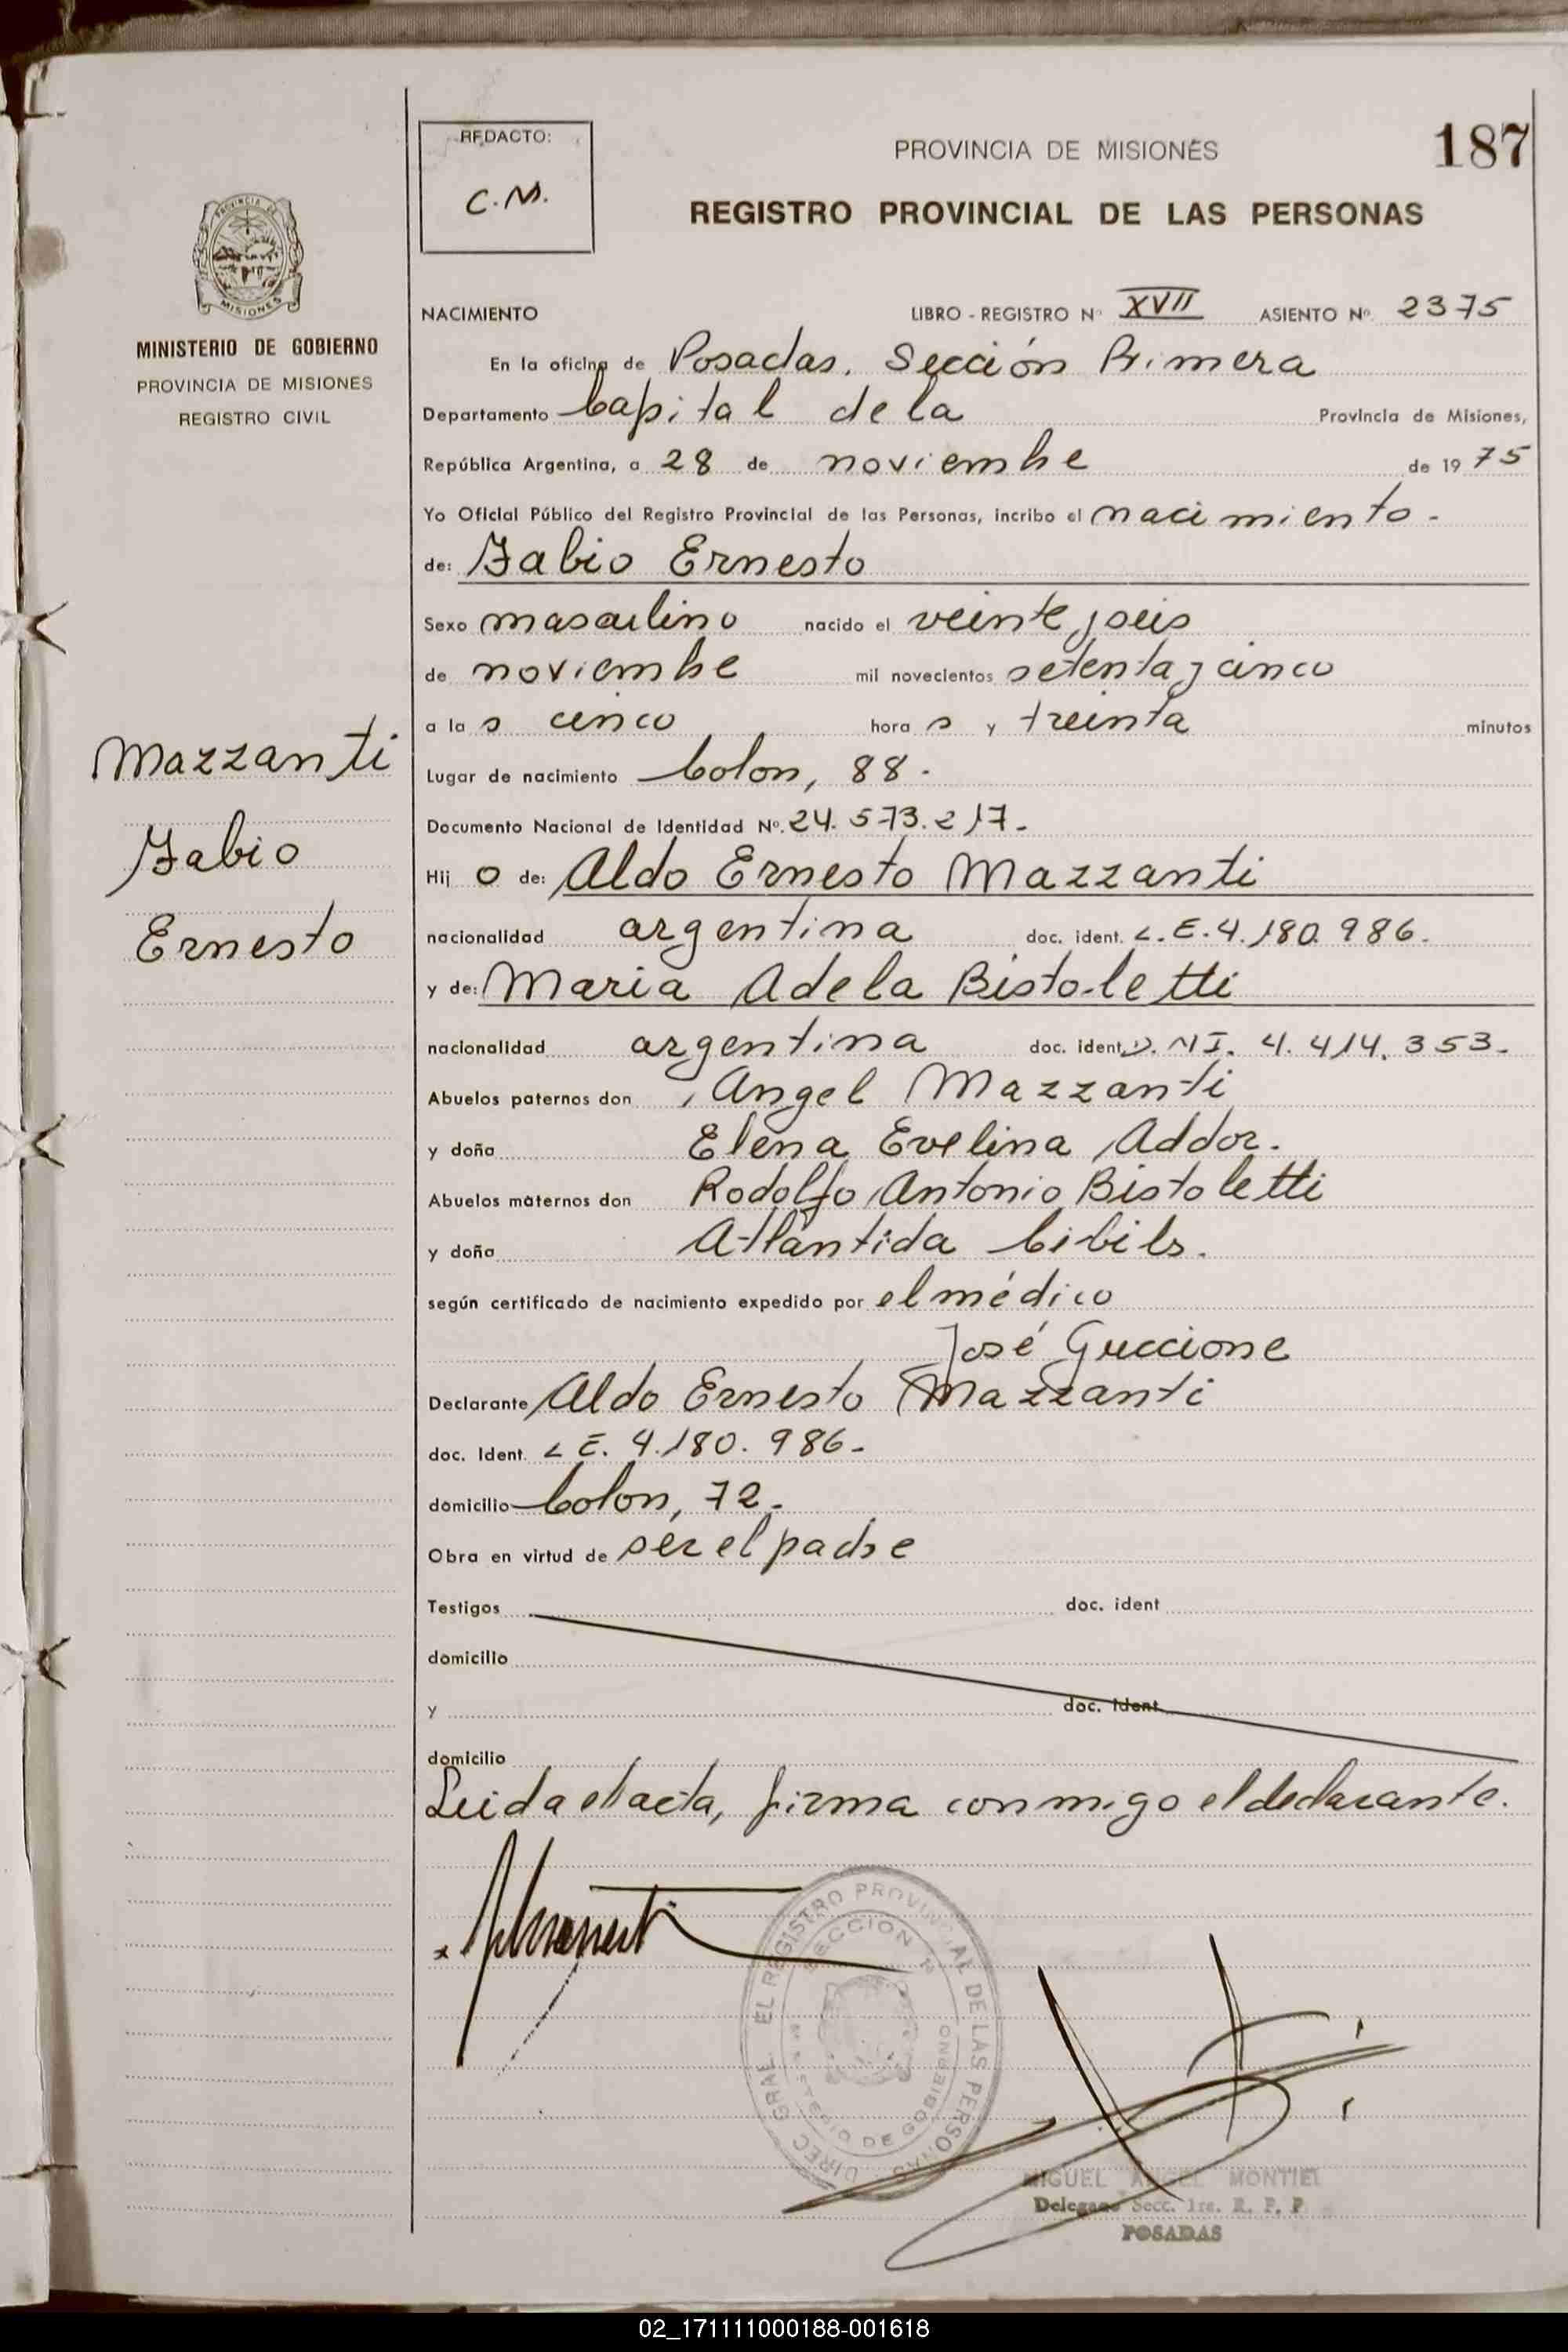 REDACTO:
C.M.
PROVINCIA DE MISIONES
187
REGISTRO PROVINCIAL DE LAS PERSONAS
PROVINCIA DE MISIONES
MINISTERIO DE GOBIERNO
PROVINCIA DE MISIONES
REGISTRO CIVIL
NACIMIENTO LIBRO - REGISTRO Nº XVII ASIENTO Nº 2375
En la oficina de Posadas. Sección Primera
Departamento Capital de la Provincia de Misiones,
República Argentina, a 28 de noviembre de 1975
Yo Oficial Público del Registro Provincial de las Personas, incribo el nacimiento.
de: Fabio Ernesto
Sexo masculino nacido el veinte y seis
de noviembre mil novecientos setenta y cinco
a las cinco horas y treinta minutos
Lugar de nacimiento Colon, 88.
Documento Nacional de Identidad Nº. 24.573.217.
Hijo de: Aldo Ernesto Mazzanti
nacionalidad argentina doc. ident. L.E. 4.180.986.
y de: Maria Adela Bistoletti
nacionalidad argentina doc. ident. D.NI. 4.414.353.
Abuelos paternos don Angel Mazzanti
y doña Elena Evelina Addor.
Abuelos maternos don Rodolfo Antonio Bistoletti
y doña Atlántida Cibils.
según certificado de nacimiento expedido por el médico
José Guccione
Declarante Aldo Ernesto Mazzanti
doc. Ident. L E. 4.180.986.
domicilio Colon, 72.
Obra en virtud de ser el padre
Testigos doc. ident
domicilio
y doc. ident
domicilio
Leida el acta, firma conmigo el declarante.
Mazzanti
Fabio
Ernesto
DIREC GRAL EL REGISTRO PROVINCIAL DE LAS PERSONAS
SECCION 1ª
MINISTERIO DE GOBIERNO
MIGUEL ANGEL MONTIEL
Delegado Secc. 1ra. R. P. P
POSADAS
02_171111000188-001618